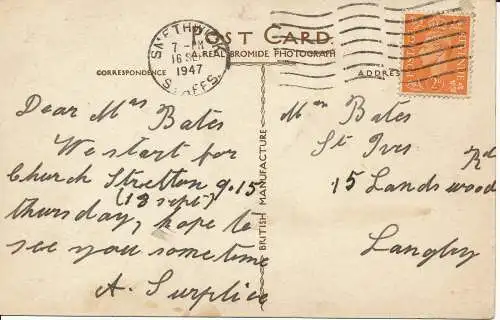 POST CARD.
A REAL BROMIDE PHOTOGRAPH
CORRESPONDENCE
ADDRESS
SMETHWICK
7 - PM
16 SE
1947
STAFFS
BRITISH MANUFACTURE
Dear Mrs Bates
We start for
Church Stretton 9.15
(18 sept)
thursday, hope to
see you sometime
A. Surplice
Mrs Bates
St Ives
15 Landswood Rd
Langley